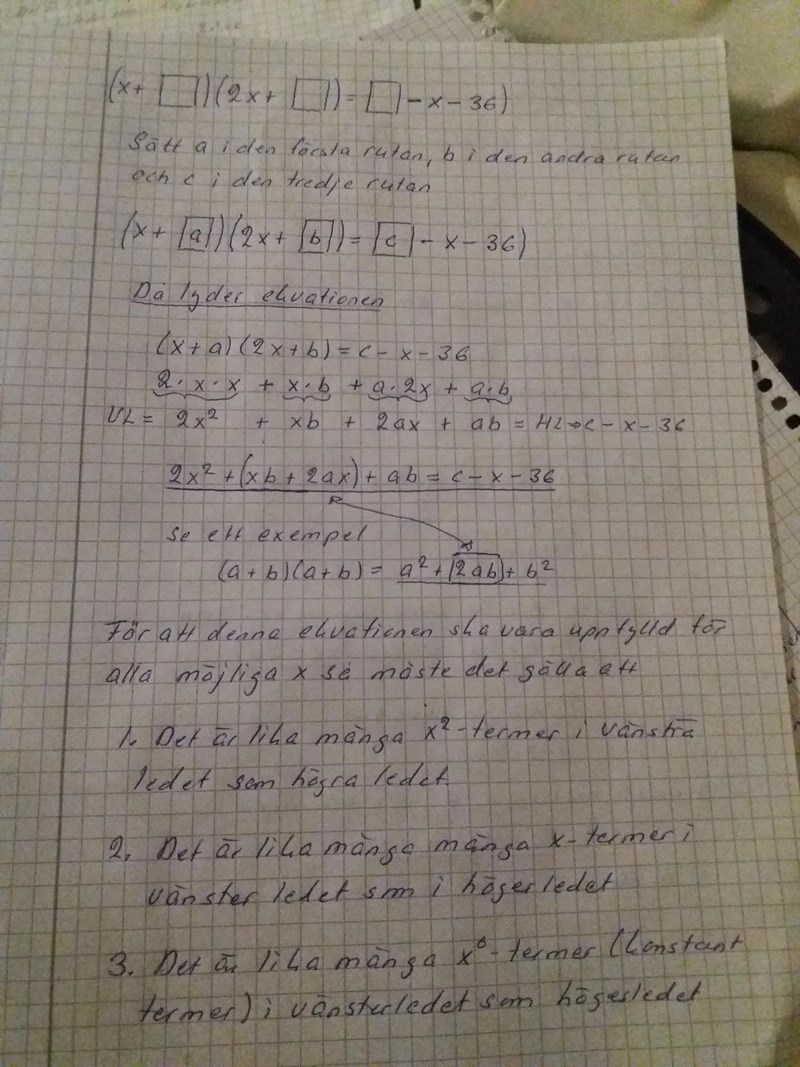 (x+ □)(2x+ □)= □-x-36)
Sätt a i den första rutan, b i den andra rutan
och c i den tredje rutan
(x+ [a])(2x+ [b])= [c]-x-36)
Då lyder ekvationen
(x+a)(2x+b)=c-x-36
2·x·x + x·b + a·2x + a·b
VL= 2x² + xb + 2ax + ab = HL⇒c-x-36
2x²+(xb+2ax)+ab=c-x-36
se ett exempel
(a+b)(a+b)= a²+[2ab]+b²
För att denna ekvationen ska vara uppfylld för
alla möjliga x så måste det gälla att
1. Det är lika många x²-termer i vänstra
ledet som högra ledet.
2. Det är lika många många x-termer i
vänster ledet som i högerledet
3. Det är lika många x⁰-termer (konstant
termer) i vänsterledet som högerledet